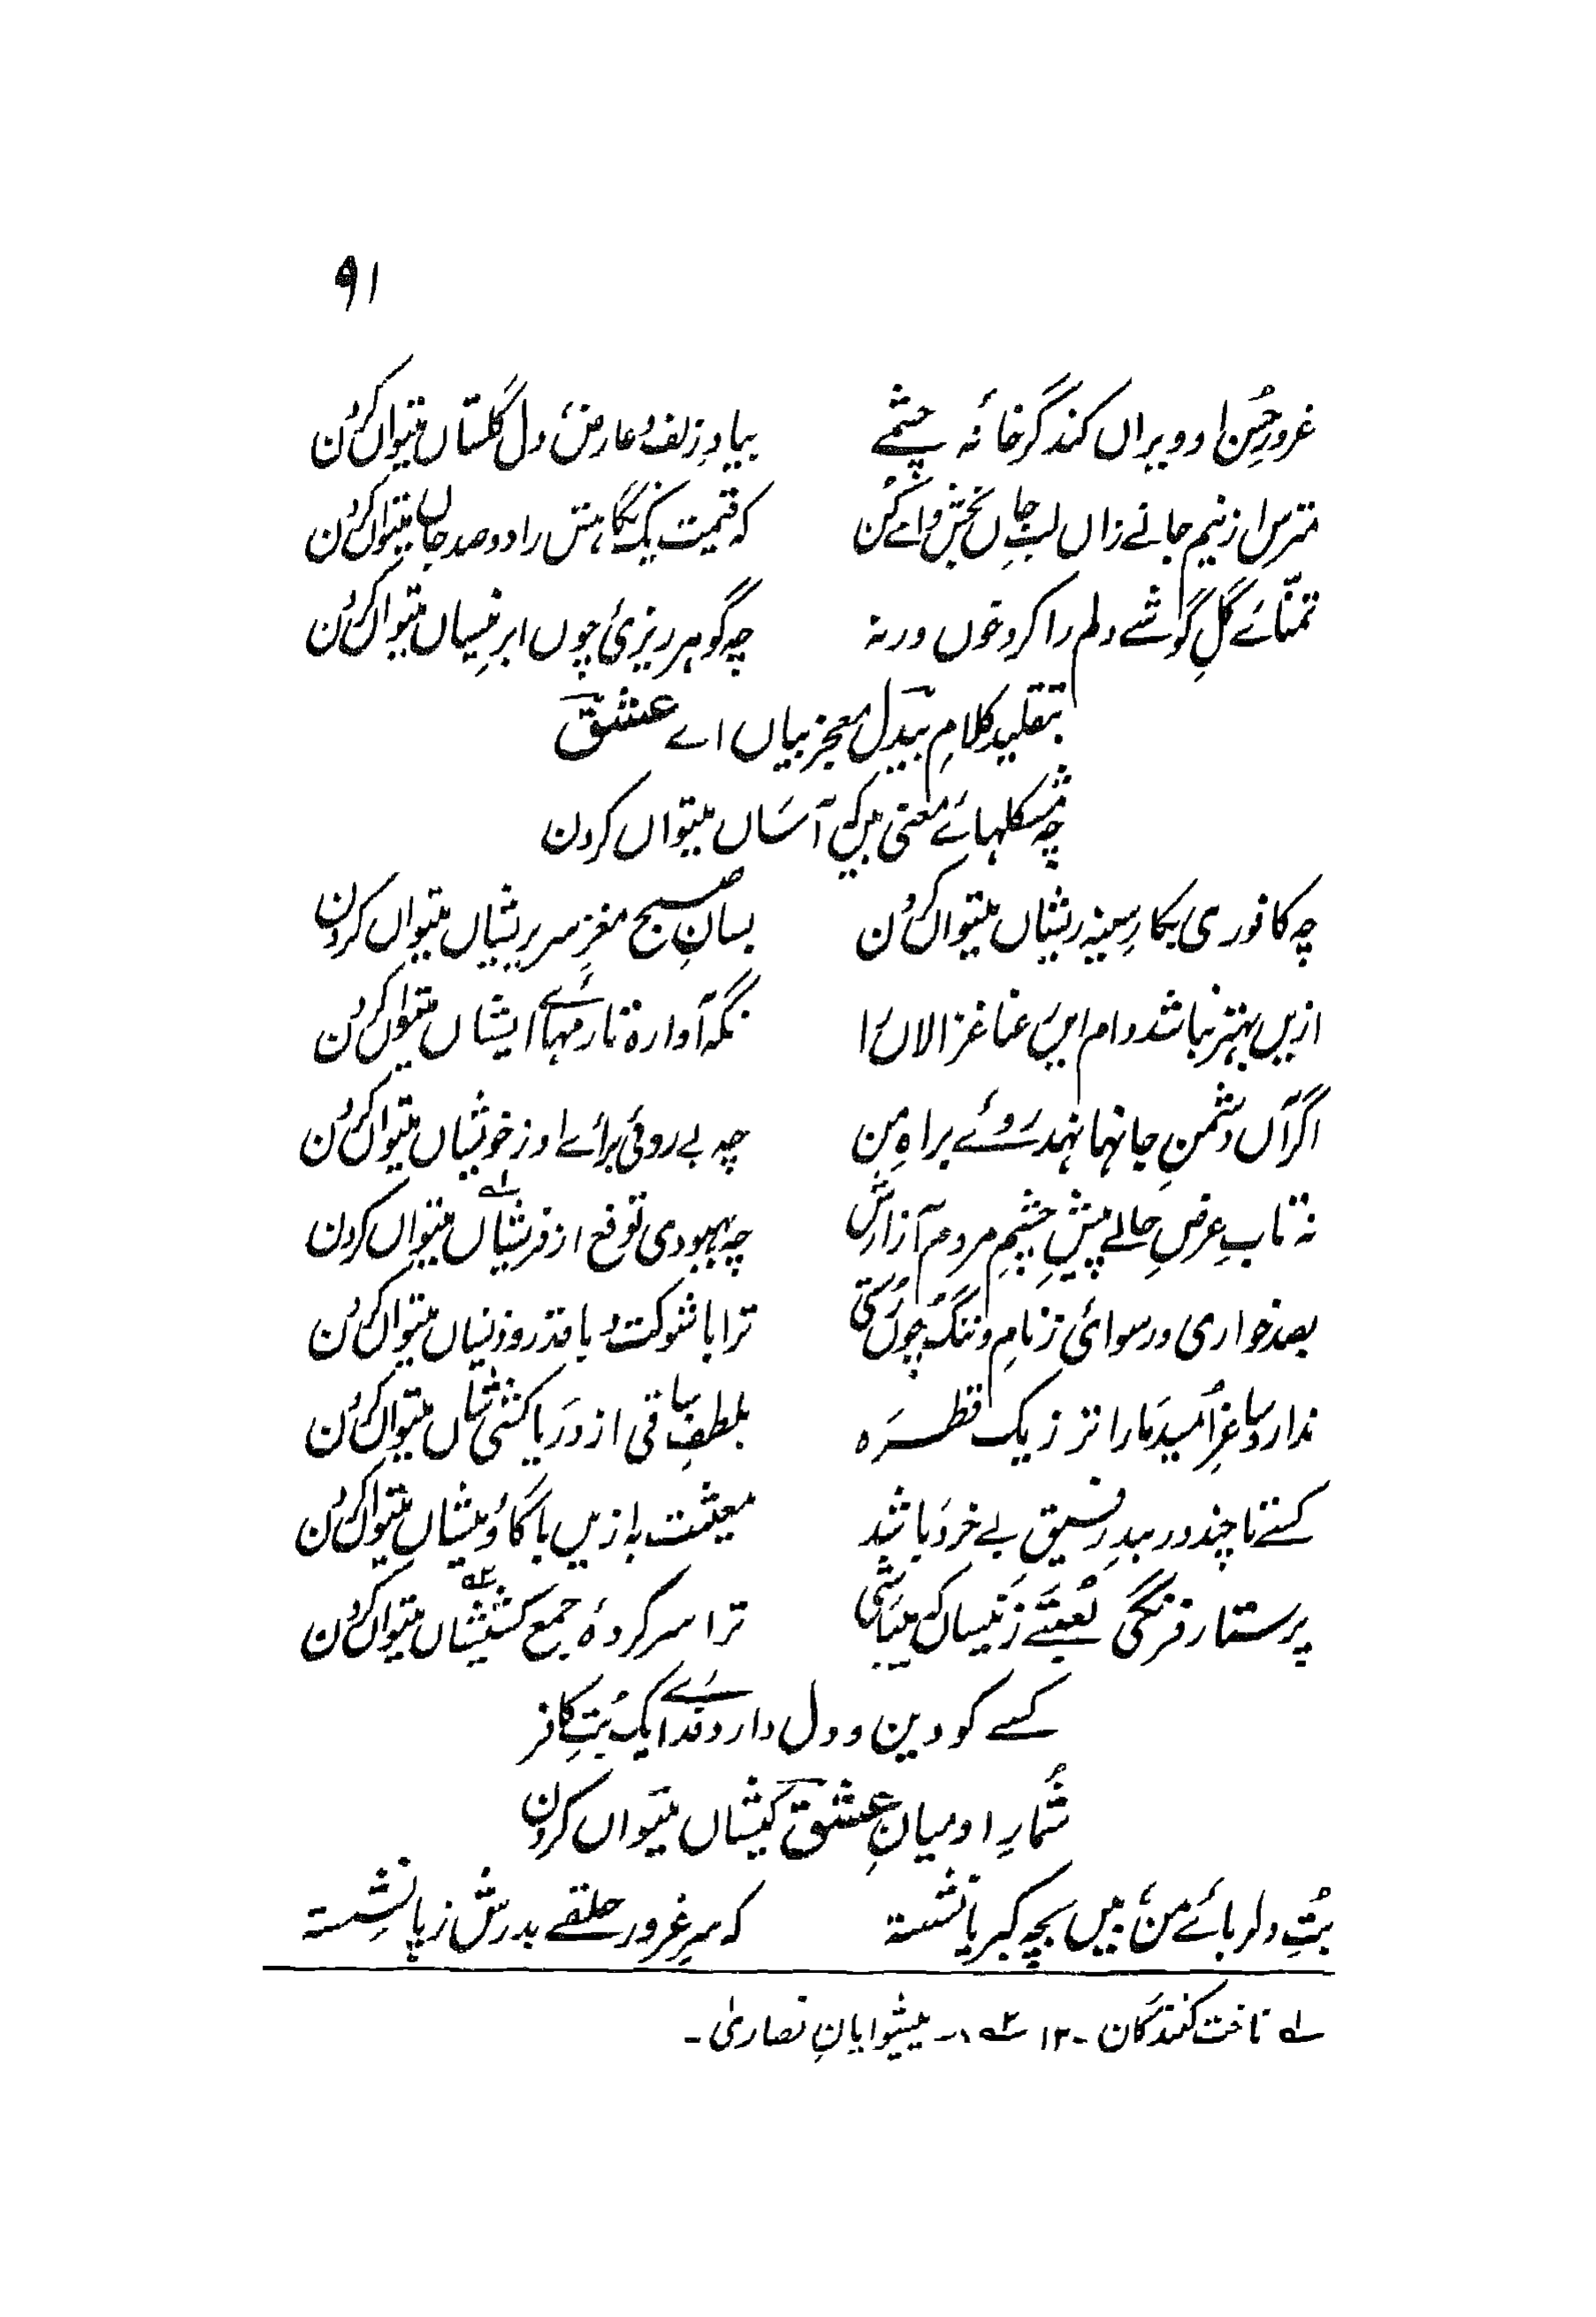 ۹۱
غرورِ حُسنِ او ویراں کند گر خانۂ چشمے بیادِ زلف و عارض، دل گلستاں میتواں کردن
مترس از نیم جانے زاں لبِ جاں بخش وامے کُن کہ قیمت یک نگاہش را دو صد جاں میتواں کردن
تمنّائے گلِ گوشے دلم را کرد خوں ورنہ چہ گوہر ریزیٔ چوں ابرِ نیساں میتواں کردن
بتقلیدِ کلامِ بیدلِ معجز بیاں اے عشقؔ
چہ مُشکلہائے معنی بیں کہ آساں میتواں کردن
چہ کافوری بکارِ سینہ ریشاں میتواں کردن بسانِ صبح مغزِ سر پریشاں میتواں کردن
ازیں بہتر نباشد دام ایں رعنا غزالاں را نگہ آوارہ تا رمہائے ایشاں میتواں کردن
اگر آں دشمنِ جانہا نہد روئے براہِ من چہ بے روئی برائے او ز خویشاں میتواں کردن
نہ تابِ عرضِ حالے پیشِ چشمِ مردم آزارش چہ بہبودی توقع از قریشاں لہ میتواں کردن
بصد خواری و رسوائی ز نامِ و ننگ چوں رَستی ترا با شوکت و با قدر و ذیشاں میتواں کردن
ندارد ساغرِ اُمید مارا تر ز یک قطرہ بلطفِ ساقی از دریا کشی شاں میتواں کردن
کسے تا چند در بندِ رفیقِ بے خرد باشد معیشت بہ ازیں با گاؤ میشاں میتواں کردن
پرستار فرنگی لُعبتے زینساں کہ میباشی ترا سر کردۂ جمع کشیشاں ۲ہ میتواں کردن
کسے کو دین و دل دارد فدائے یک بُتِ کافر
شُمارِ او میانِ عشقؔ کیشاں میتواں کردن
بُتِ دلربائے من، بیں بچہ کبریا نشستہ کہ سرِ غرور خلقے بدرش ز پا نشستہ
لہ تاخت کنندگان ۔ ۱۲ ۲ہ پیشوایانِ نصاریٰ ۔